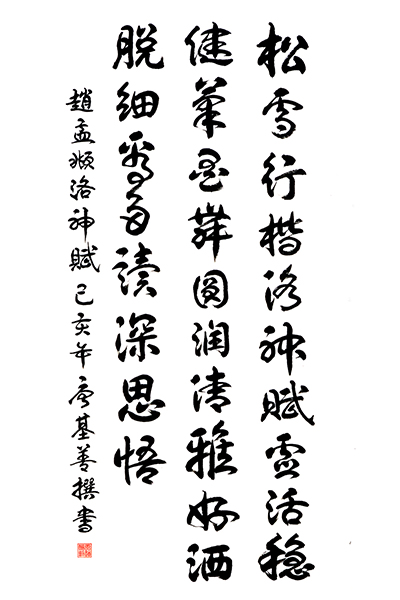 松雪行楷洛神賦靈活穩
健筆墨舞圓润清雅好洒
脱細看多讀深思悟
趙孟頫洛神賦己亥年基善撰書